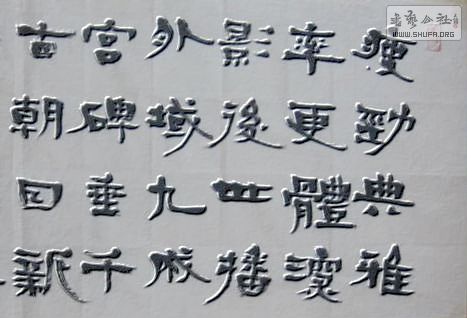 瘦勁典雅
率更體深
影後世播
外域九成
宮碑垂千
古朝新
书艺公社
WWW.SHUFA.ORG